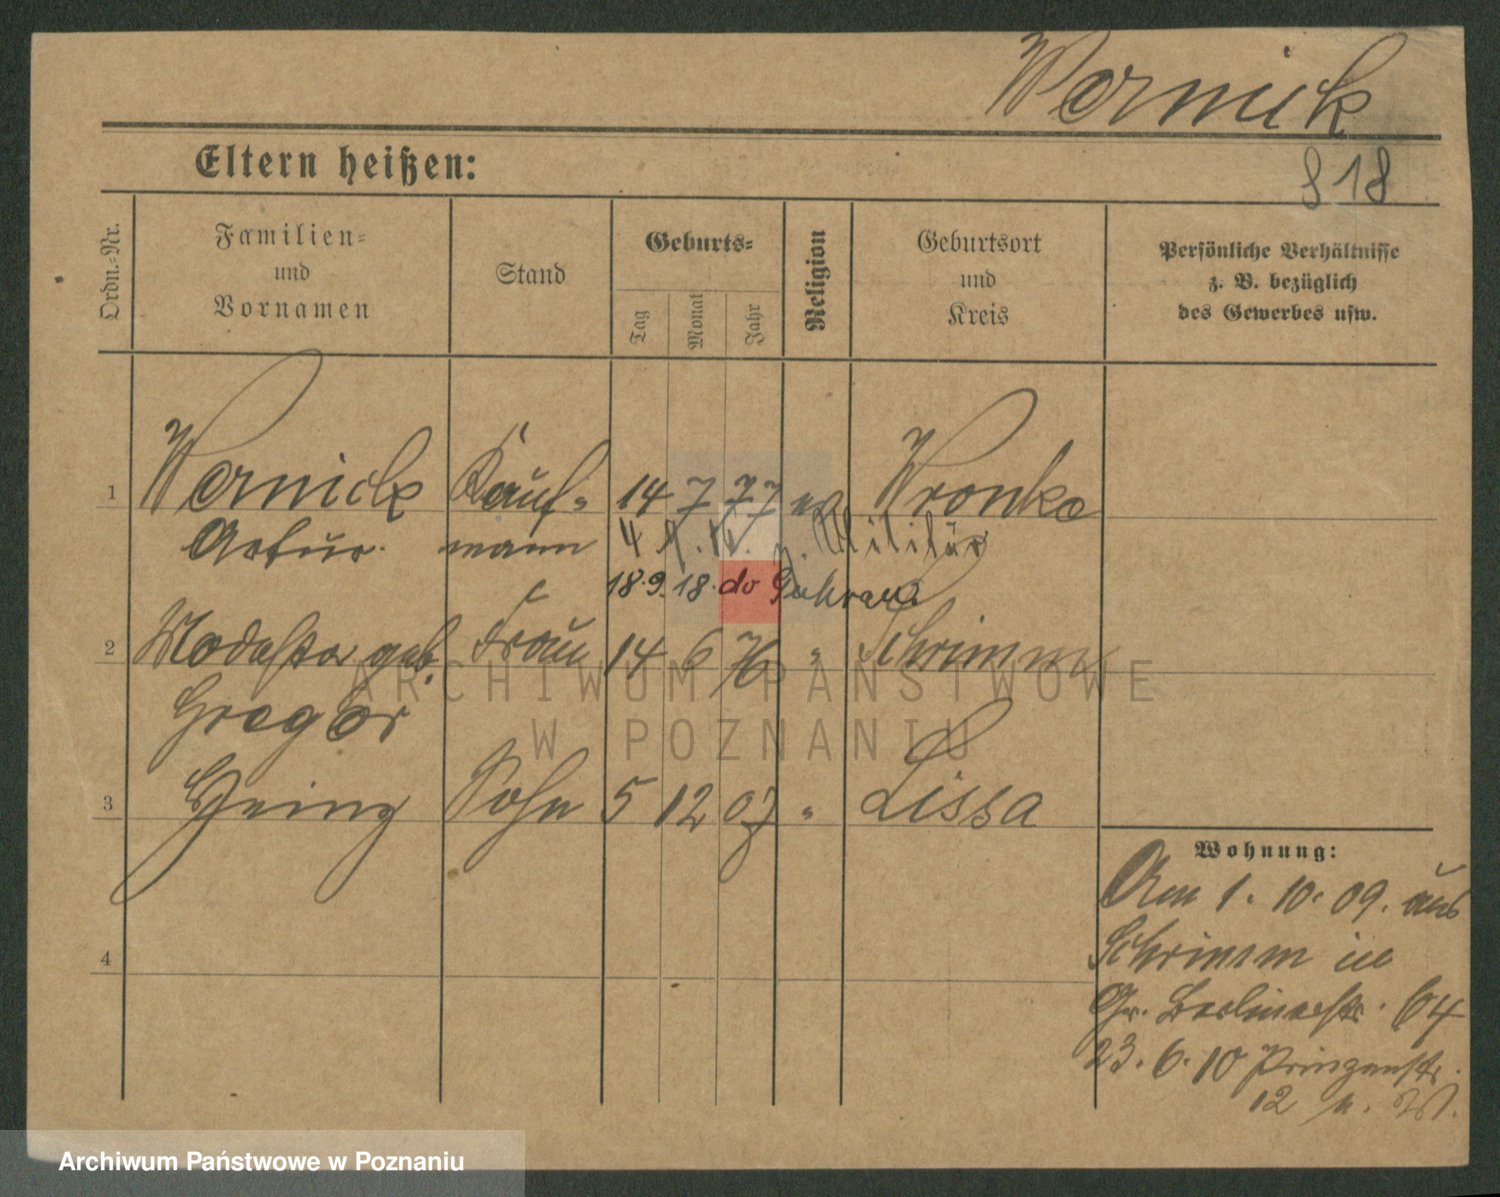 Wernick
818
Eltern heißen:
Ordn.-Nr.
Familien-
und
Vornamen
Stand
Geburts-
Tag
Monat
Jahr
Religion
Geburtsort
und
Kreis
Persönliche Verhältnisse
z. B. bezüglich
des Gewerbes usw.
1 Wernick Kauf- 14 7 77 ev Wronke
Artur mann Militär
18.9.18. do Guhrau
2 Modesta geb. Frau 14 6 76 " Schrimm
Gregor
3 Heinz Sohn 5 12 07 " Lissa
4
Wohnung:
Am 1. 10. 09. aus
Schrimm in
Gr. Berlinerstr. 64
23. 6. 10 Prinzenstr.
12
ARCHIWUM PAŃSTWOWE
W POZNANIU
Archiwum Państwowe w Poznaniu